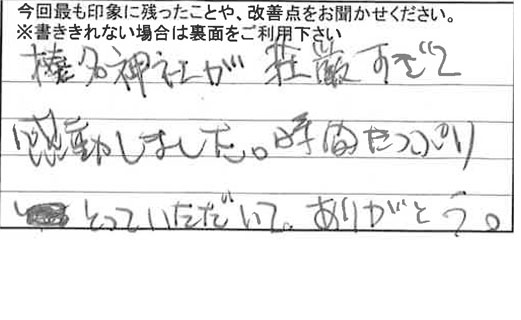 今回最も印象に残ったことや、改善点をお聞かせください。
※書ききれない場合は裏面をご利用下さい
榛名神社が荘厳すぎて
感動しました。時間たっぷり
とっていただいて。ありがとう。